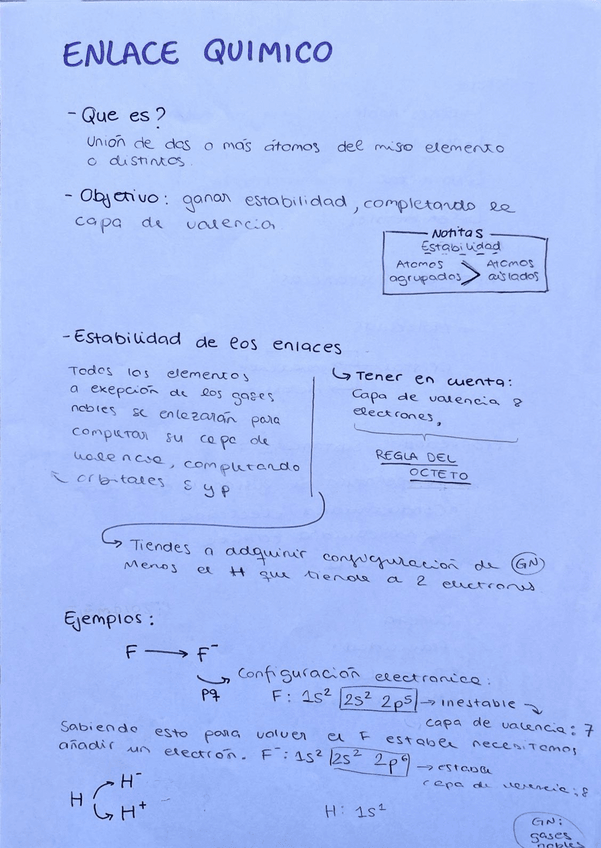 ENLACE QUIMICO
- Que es?
Unión de dos o más átomos del miso elemento
o distintos.
- Objetivo: ganar estabilidad, completando la
capa de valencia
Notitas
Estabilidad
Atomos agrupados > Atomos aislados
- Estabilidad de los enlaces
Todos los elementos
a exepción de los gases
nobles se enlazarán para
completar su capa de
valencia, completando
orbitales s y p
↳ Tener en cuenta:
Capa de valencia 8
electrones,
REGLA DEL
OCTETO
↳ Tiendes a adquirir configuración de GN
Menos el H que tiende a 2 electrones
Ejemplos:
F → F⁻
pq
Configuración electronica:
F: 1s² 2s² 2p⁵ → inestable
capa de valencia: 7
Sabiendo esto para volver el F estable necesitamos
añadir un electrón. F⁻: 1s² 2s² 2p⁶ → estable
capa de valencia: 8
H⁻
H
H⁺
H: 1s¹
GN:
gases
nobles